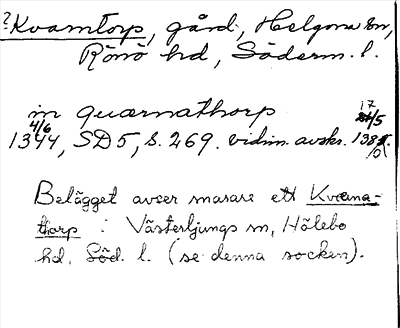 ?Kvamtorp, gård, Helgona sn,
Rönö hd, Söderm. l.
in quærnathorp 17
4/6 /5
1344, SD 5, s. 269. vidim. avskr. 138
Belägget avser snarare ett Kværna-
thorp i Västerljungs sn, Hölebo
hd, Söd. l. (se denna socken).